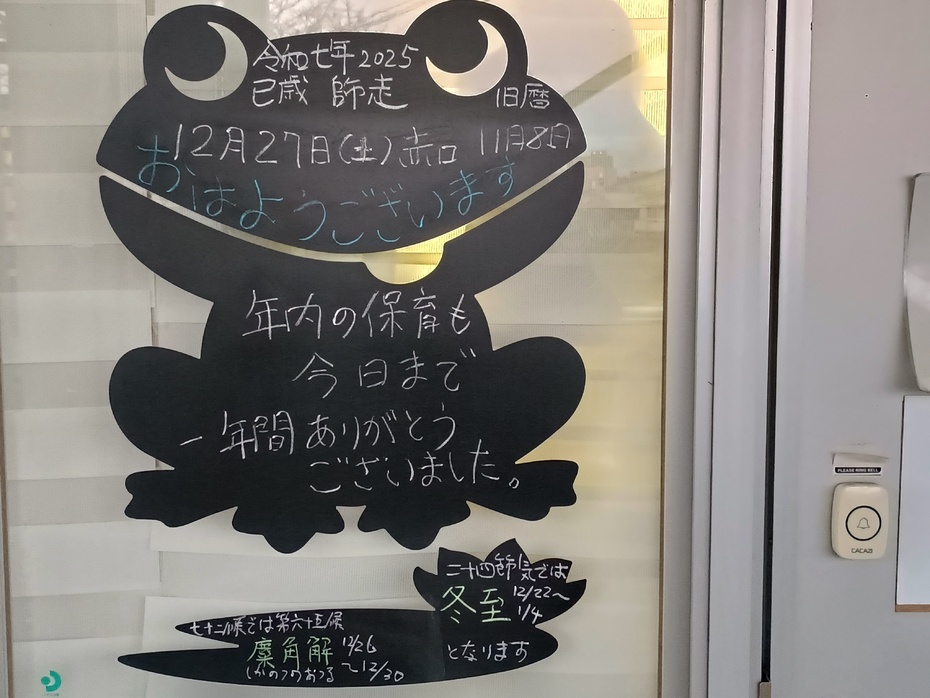 令和七年2025
巳歳 師走
旧暦
12月27日(土)赤口 11月8日
おはようございます
年内の保育も
今日まで
一年間ありがとう
ございました。
二十四節気では
冬至 12/22～
1/4
となります
七十二候では第六十五候
麋角解 12/26
～12/30
(かのつのおつる
PLEASE RING BELL
CACAZI